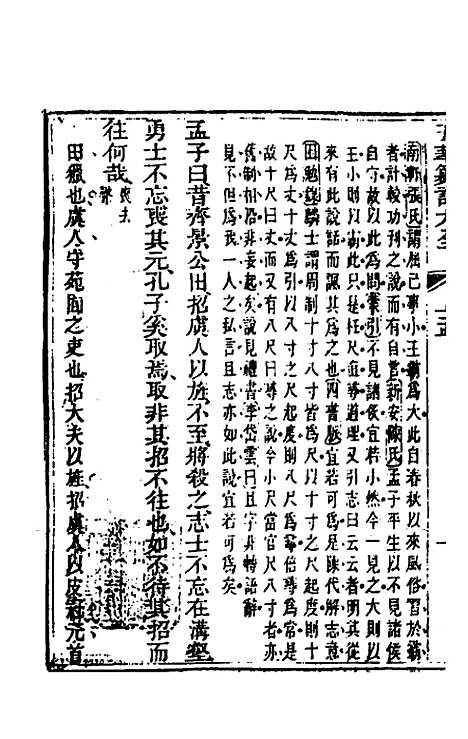 南軒張氏謂屈己事小王霸爲大此自春秋以來風俗習於霸
者計較功利之說而有自言新安陳氏孟子平生以不見諸侯
自守故以此爲問蒙引不見諸侯宜若小然今一見之大則以
王小則以霸此只是枉尺直尋道理又引志曰云云者明其從
來有此說話而諷其爲之也四書脈宜若可爲是陳代解志意
田勉錢驎士謂周制十寸八寸皆爲尺以十寸之尺起度則十
尺爲丈十丈爲引以八寸之尺起度則八尺爲尋倍尋爲常是
故十尺曰丈而又有八尺曰尋之說今小尺當官尺八寸者亦
舊制相沿非妄起矣說見禮書李岱雲曰且字非轉語辭
見不但爲我一人之私言且志亦如此說宜若可爲矣
孟子曰昔齊景公田招虞人以旌不至將殺之志士不忘在溝壑
勇士不忘喪其元孔子奚取焉取非其招不往也如不待其招而
往何哉喪去聲
田獵也虞人守苑囿之吏也招大夫以旌招虞人以皮冠元首